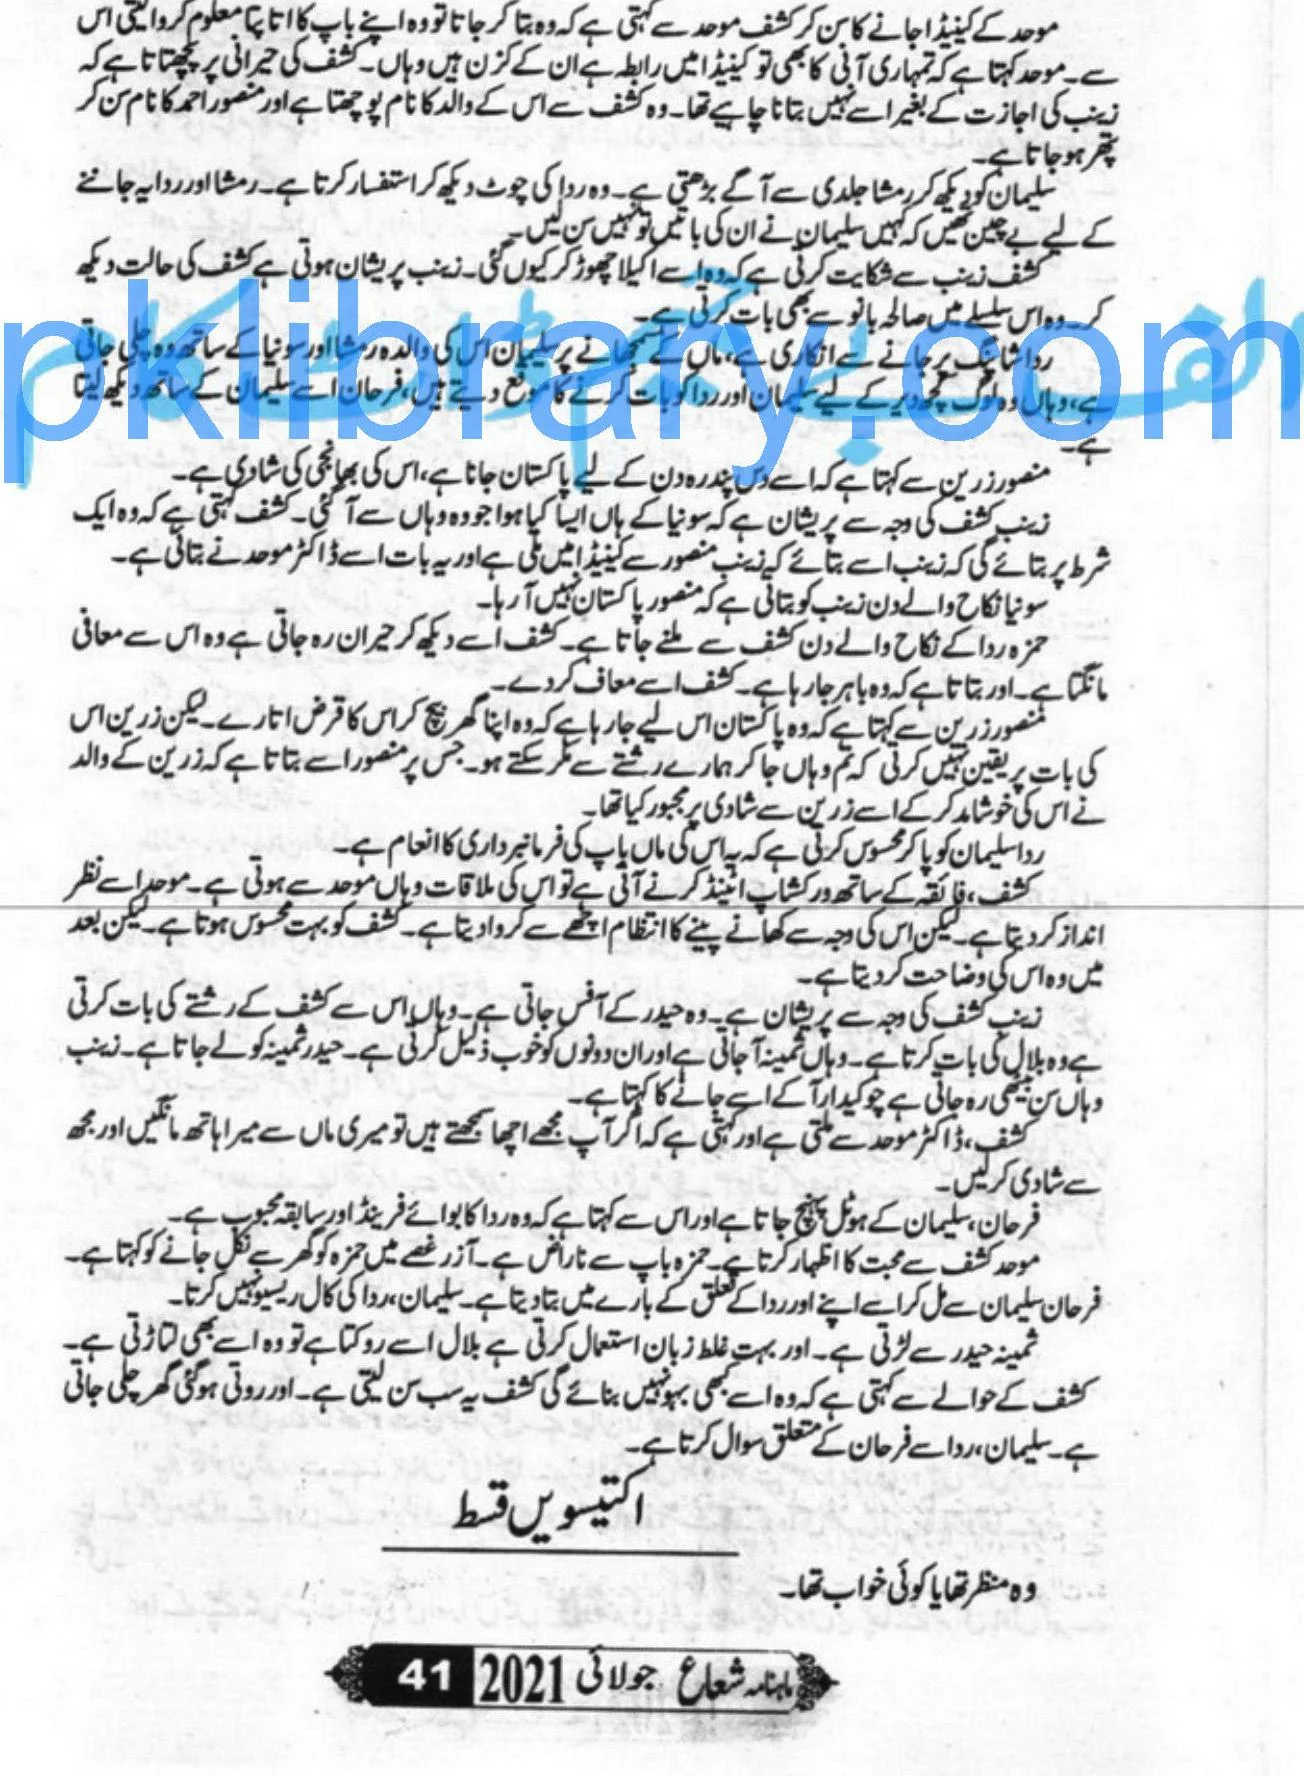 موحد کے کینیڈا جانے کا سن کر کشف موحد سے کہتی ہے کہ وہ بتا کر جاتا تو وہ اپنے باپ کا اتا پتا معلوم کروا لیتی اس
سے۔ موحد کہتا ہے کہ تمہاری آنی کا بھی تو کینیڈا میں رابطہ ہے ان کے کزن ہیں وہاں۔ کشف کی حیرانی پر پچھتاتا ہے کہ
زینب کی اجازت کے بغیر اسے نہیں بتانا چاہیے تھا۔ وہ کشف سے اس کے والد کا نام پوچھتا ہے اور منصور احمد کا نام سن کر
پتھر ہو جاتا ہے۔
سلیمان کو دیکھ کر رمشا جلدی سے آگے بڑھتی ہے۔ وہ ردا کی چوٹ دیکھ کر استفسار کرتا ہے۔ رمشا اور ردا یہ جاننے
کے لیے بے چین تھیں کہ کہیں سلیمان نے ان کی باتیں تو نہیں سن لیں۔
کشف زینب سے شکایت کرتی ہے کہ وہ اسے اکیلا چھوڑ کر کیوں گئی۔ زینب پریشان ہوتی ہے کشف کی حالت دیکھ
کر۔ وہ اس سلسلے میں صالحہ بانو سے بھی بات کرتی ہے۔
ردا شاپنگ پر جانے سے انکاری ہے، ماں کے سمجھانے پر سلیمان اس کی والدہ رمشا اور سونیا کے ساتھ وہ چلی جاتی
ہے، وہاں وہ لوگ کچھ دیر کے لیے سلیمان اور ردا کو بات کرنے کا موقع دیتے ہیں، فرحان اسے سلیمان کے ساتھ دیکھ لیتا
ہے۔
pklibrary.com
منصور زرین سے کہتا ہے کہ اسے دس پندرہ دن کے لیے پاکستان جانا ہے، اس کی بھانجی کی شادی ہے۔
زینب کشف کی وجہ سے پریشان ہے کہ سونیا کے ہاں ایسا کیا ہوا جو وہ وہاں سے آ گئی۔ کشف کہتی ہے کہ وہ ایک
شرط پر بتائے گی کہ زینب اسے بتائے کہ زینب منصور سے کینیڈا میں ملی ہے اور یہ بات اسے ڈاکٹر موحد نے بتائی ہے۔
سونیا نکاح والے دن زینب کو بتاتی ہے کہ منصور پاکستان نہیں آ رہا۔
حمزہ ردا کے نکاح والے دن کشف سے ملنے جاتا ہے۔ کشف اسے دیکھ کر حیران رہ جاتی ہے وہ اس سے معافی
مانگتا ہے۔ اور بتاتا ہے کہ وہ باہر جا رہا ہے۔ کشف اسے معاف کر دے۔
منصور زرین سے کہتا ہے کہ وہ پاکستان اس لیے جا رہا ہے کہ وہ اپنا گھر بیچ کر اس کا قرض اتارے۔ لیکن زرین اس
کی بات پر یقین نہیں کرتی کہ تم وہاں جا کر ہمارے رشتے سے مکر سکتے ہو۔ جس پر منصور اسے بتاتا ہے کہ زرین کے والد
نے اس کی خوشامد کر کے اسے زرین سے شادی پر مجبور کیا تھا۔
ردا سلیمان کو پا کر محسوس کرتی ہے کہ یہ اس کی ماں باپ کی فرمانبرداری کا انعام ہے۔
کشف، فائقہ کے ساتھ ورکشاپ اٹینڈ کرنے آتی ہے تو اس کی ملاقات وہاں موحد سے ہوتی ہے۔ موحد اسے نظر
انداز کر دیتا ہے۔ لیکن اس کی وجہ سے کھانے پینے کا انتظام اچھے سے کروا دیتا ہے۔ کشف کو بہت محسوس ہوتا ہے۔ لیکن بعد
میں وہ اس کی وضاحت کر دیتا ہے۔
زینب کشف کی وجہ سے پریشان ہے۔ وہ حیدر کے آفس جاتی ہے۔ وہاں اس سے کشف کے رشتے کی بات کرتی
ہے وہ بلال کی بات کرتا ہے۔ وہاں ثمینہ آ جاتی ہے اور ان دونوں کو خوب ذلیل کرتی ہے۔ حیدر ثمینہ کو لے جاتا ہے۔ زینب
وہاں سن بیٹھی رہ جاتی ہے چوکیدار آ کے اسے جانے کا کہتا ہے۔
کشف، ڈاکٹر موحد سے ملتی ہے اور کہتی ہے کہ اگر آپ مجھے اچھا سمجھتے ہیں تو میری ماں سے میرا ہاتھ مانگیں اور مجھ
سے شادی کر لیں۔
فرحان، سلیمان کے ہوٹل پہنچ جاتا ہے اور اس سے کہتا ہے کہ وہ ردا کا بوائے فرینڈ اور سابقہ محبوب ہے۔
موحد کشف سے محبت کا اظہار کرتا ہے۔ حمزہ باپ سے ناراض ہے۔ آزر غصے میں حمزہ کو گھر سے نکل جانے کو کہتا ہے۔
فرحان سلیمان سے مل کر اسے اپنے اور ردا کے تعلق کے بارے میں بتا دیتا ہے۔ سلیمان، ردا کی کال ریسیو نہیں کرتا۔
ثمینہ حیدر سے لڑتی ہے۔ اور بہت غلط زبان استعمال کرتی ہے بلال اسے روکتا ہے تو وہ اسے بھی لتاڑتی ہے۔
کشف کے حوالے سے کہتی ہے کہ وہ اسے کبھی بہو نہیں بنائے گی کشف یہ سب سن لیتی ہے۔ اور روتی ہو گئی گھر چلی جاتی
ہے۔ سلیمان، ردا سے فرحان کے متعلق سوال کرتا ہے۔
اکتیسویں قسط
وہ منظر تھا یا کوئی خواب تھا۔
ماہنامہ شعاع جولائی 2021 41